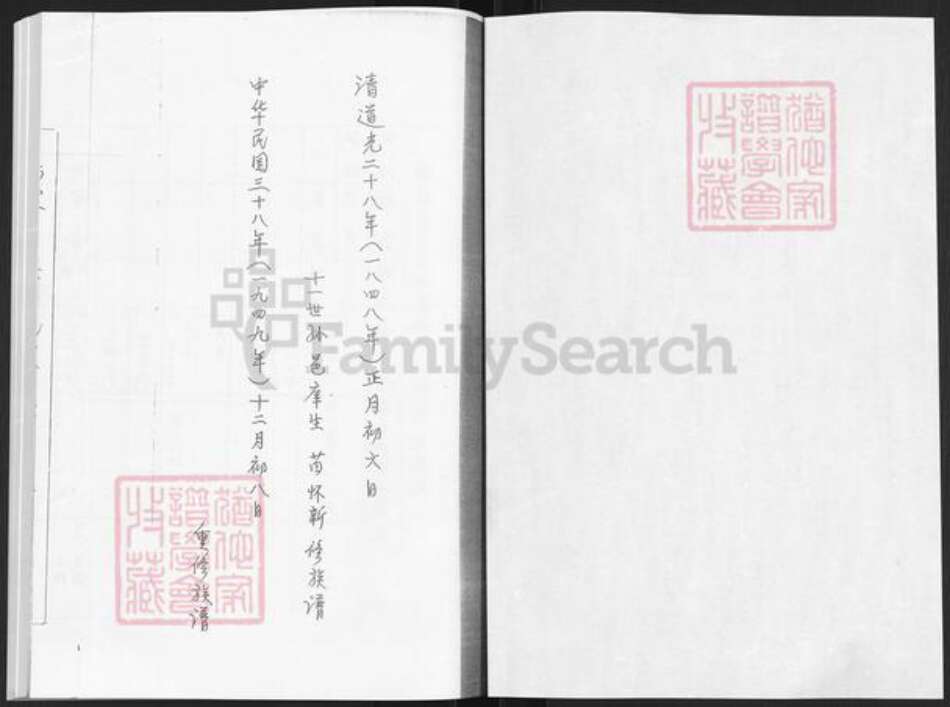 清道光二十八年(一八四八年)正月初六日
十一世孙邑庠生 苗怀新 修族谱
中华民国三十八年(一九四九年)十二月初八日
重修族谱
猶他家譜學會收藏
猶他家譜學會收藏
FamilySearch